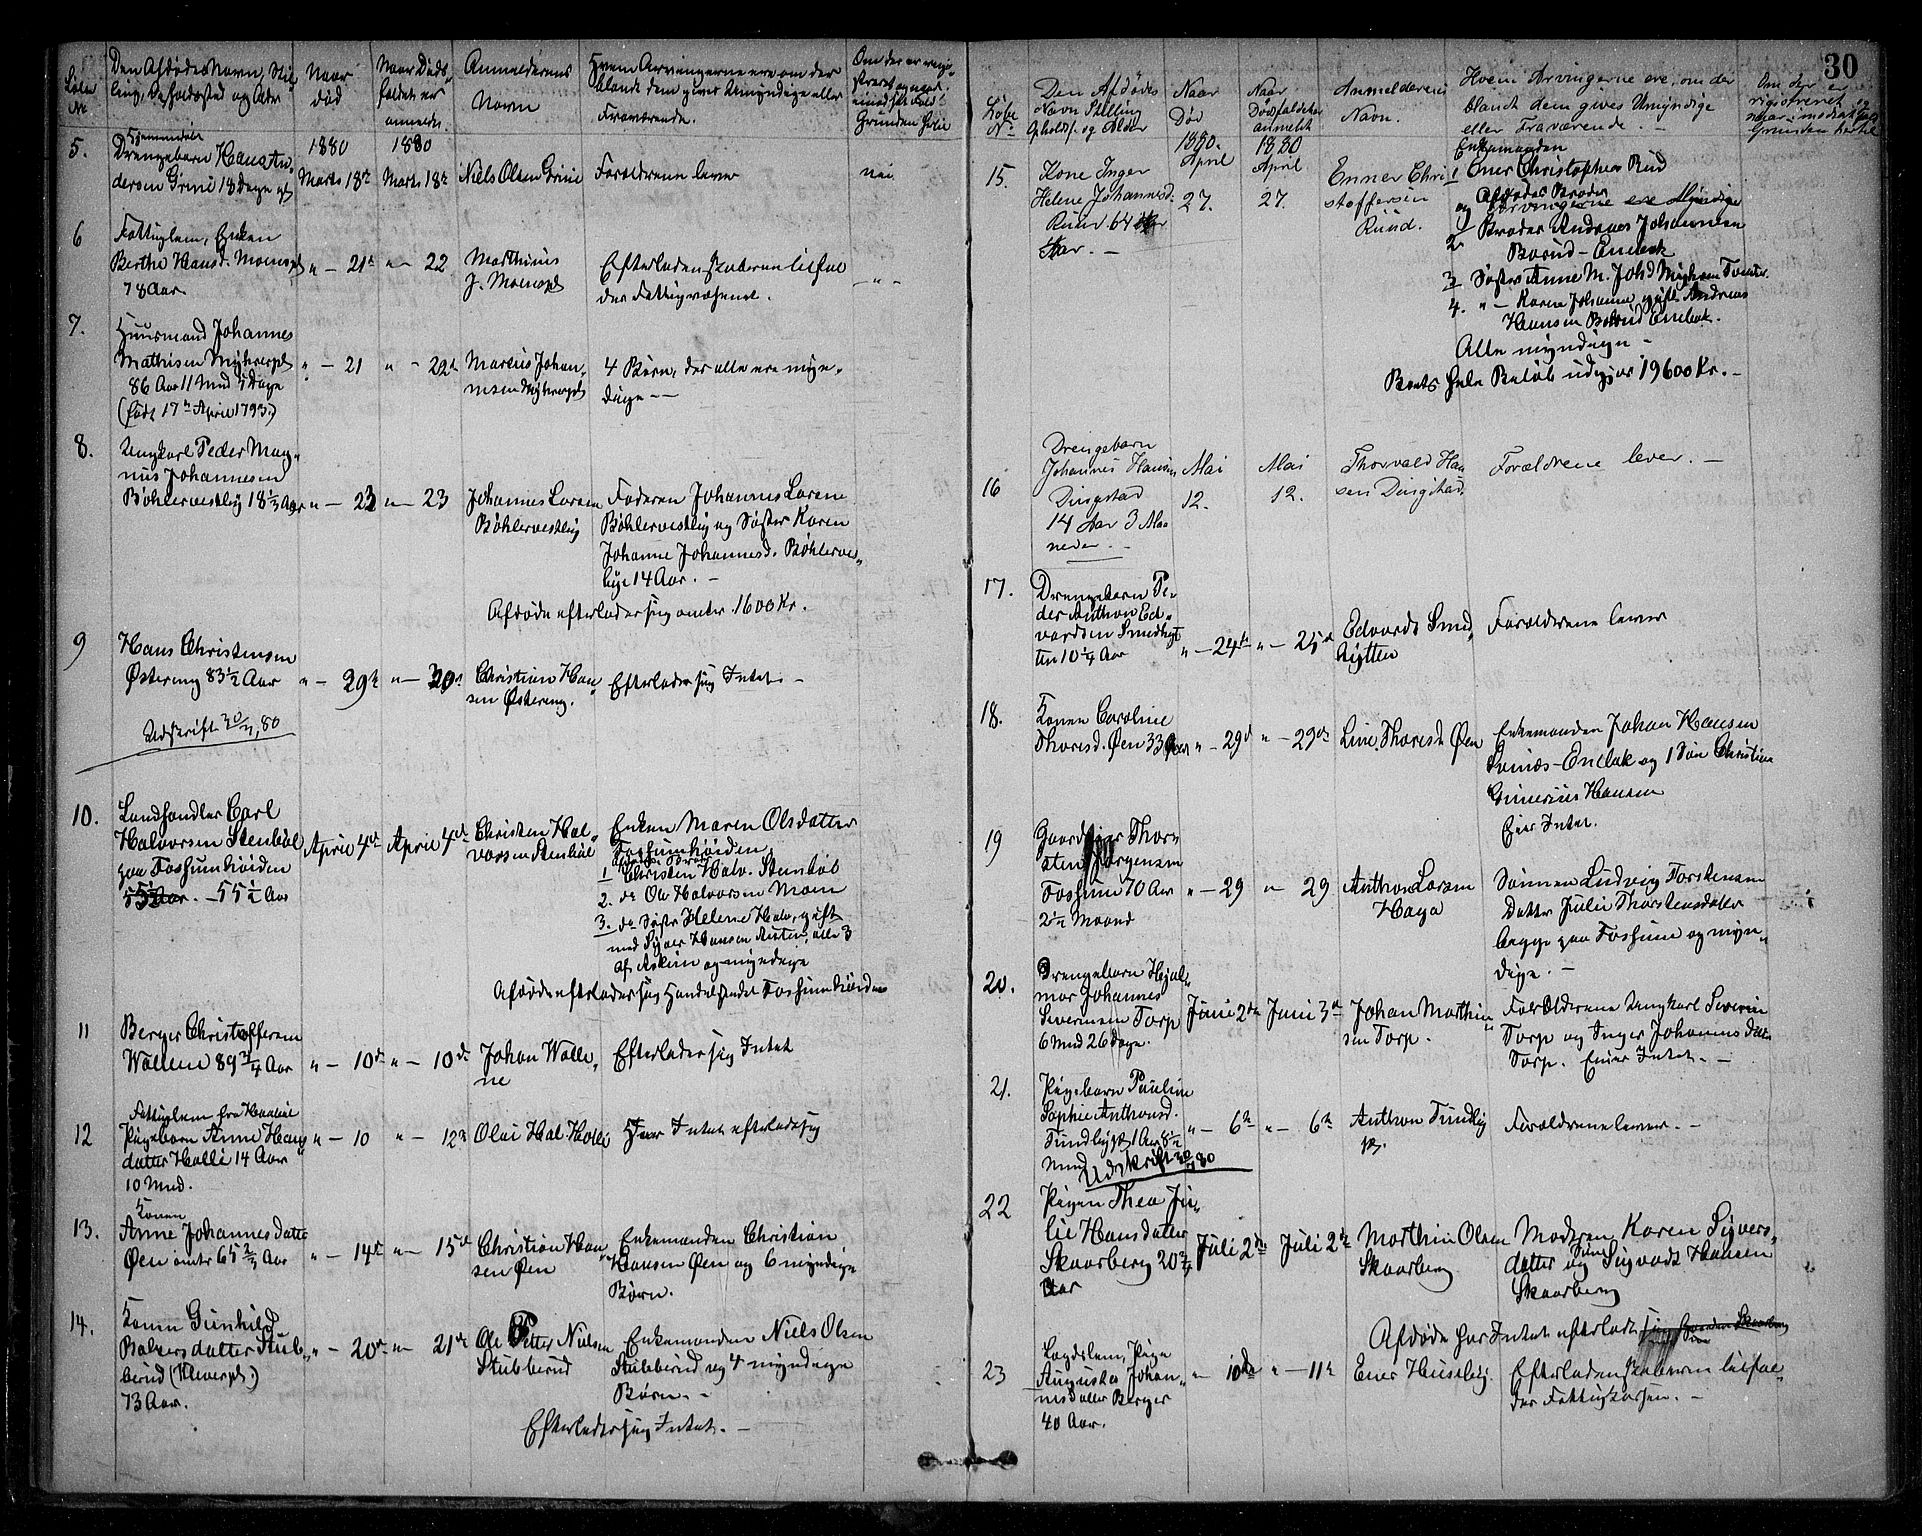 30
Løbe No
Den Afdødes Navn, Stilling, Opholdssted og Alder
Naar død
Naar Dødsfaldet er anmeldt
Anmelderens Navn
Hvem Arvingerne ere om der blandt dem gives Umyndige eller Fraværende.
5.
Hjemmedøbt
Drengebarn Hans Andersen Grini 18 Dage gl
1880
Marts 18de
1880
Marts 18de
Niels Olsen Grini
Forældrene lever
nei
6
Fattiglem, Enken
Berthe Hansd. Moenspl
78 Aar
" — 21de
" — 22
Marthinus
J. Moenspl
Efterladenskaberne tilfal
der Fattigvæsenet.
— " —
7.
Huusmand Johannes
Mathisen Myhrerpl
86 Aar 11 Mnd 4 Dage
(født 17de April 1793.)
" — 21
" — 22de
Marcus Johan
nesen Myhrerpl
4 Børn, der alle ere myn
dige — —
8.
Ungkarl Peder Mag
nus Johannesen
Bøhlervestlig 18½ Aar
" — 23
" — 23
Johannes Larsen
Bøhlervestlig
Faderen Johannes Larsen
Bøhlervestlig og Søster Karen
Johanne Johannesd. Bøhlerve
lig 14 Aar. —
Afdøde efterlader sig omtr. 1600 Kr.
9
Hans Christensen
Østereng 83½ Aar
" — 29de
" — 30de
Christian Han
sen Østereng.
Efterlader sig Intet. —
Udskrift 30/4, 80
10.
Landhandler Carl
Halvorsen Stenbøl
paa Fossumhøiden
— 55½ Aar
April 4de
April 4de
Christen Hal
vorsen Stenbøl
Enken Maren Olsdatter
Fossumhøiden
Afdødes Brødre
1 Christen Halv. Stenbøl
2. do Ole Halvorsen Moen
3. do Søster Helene Halv, gift
med Syver Hansen Auten, alle 3
af Askim og myndige
Afdøde efterlader sig Handelsstedet Fossumhøiden
11
Berger Christoffersen
Wallene 89¾ Aar
" — 10de
" — 10de
Johan Walle
ne
Efterlader sig Intet
12
Fattiglem fra
Pigebarn Anne Hans
datter Holli 14 Aar
10 Mnd.
" — 10
" — 12te
Olai Hal. Holli
Intet efterlade sig
13.
Konen
Anne Johannesdatter
Øen omtr 65 Aar
" — 14de
" — 15de
Christian Han
sen Øen
Enkemanden Christian
Hansen Øen og 6 myndige
Børn.
14.
Konen Gunhild
Balzersdatter Stub
berud (Kleverpl.)
73 Aar.
" — 20de
" — 21de
Ole Petter Nielsen
Stubberud
Enkemanden Niels Olsen
Stubberud og 4 myndige
Børn. —
Efterlader sig Intet. —
Løbe No
Den Afdødes
Navn Stilling
Opholds. og Alder
Naar
Død
Naar
Dødsfaldet er
anmeldt
Anmelderens
Navn.
Hvem Arvingerne ere, om der
blandt dem gives Umyndige
eller Fraværende. —
15.
Kone Inger
Helene Johannesd.
Ruud. 64
Aar. —
1880.
April
27.
1880
April
27.
Enner Chri
stoffersen
Ruud.
Enkemanden
1 Ener Christophersen Rud
og Afdødes Brødre
Arvingerne ere Myndige
2 Broder Andreas Johannesen
Borud — Enebak
3 Søster Anne M. Johd
4. " — Karen Johanne, gift Andreas
Hansen Borud Enebak.
Alle myndige —
Boets hele Beløb udgjør 19600 Kr. —
16
Drengebarn
Johannes Hansen
Dingstad
14 Aar 3 Maa
neder. —
Mai
12.
Mai
12.
Thorvald Han
sen Dingstad.
Forældrene lever. —
17.
Drengebarn Pe
der Anthon Ed
vardsen Smedhyt
ten 10¼ Aar
" — 24de
" — 25de
Edvard Smed
hytten
Forældrene lever
18.
Konen Caroline
Thoresd. Øen 33 Aar
" — 29de
" — 29de
Line Thoresd. Øen
Enkemanden Johan Hansen
— Enebak og 1 Søn Christian
Gunerius Hansen
Eier Intet.
19
Gaardeier Thor
sten Jørgensen
Fossum 70 Aar
2½ Maaned
" — 29
" — 29
Anthon Larsen
Haga
Sønnen Ludvig Torstensen
Datter Julie Thorstensdatter
begge paa Fossum og myn
dige. —
20.
Drengebarn Hjal
mar Johannes
Severinsen Torp
6 Mnd 26 Dage.
Juni 2den
Juni 3de
Johan Marthin
sen Torp.
Forældrene Ungkarl Severin
Torp og Inger Johannesdatter
Torp. Eier Intet. —
21.
Pigebarn Pauline
Sophie Anthonsd.
1 Aar 8½
Mnd
Udskrift 80
" — 6te
" — 6te
Anthon
Forældrene lever. —
22
Pigen Thea Ju
lie Hansdatter
Skaarberg 20
Aar
Juli 2den
Juli 2den
Marthin Olsen
Skaarberg
Moderen Karen Syvers
datter og Søn Sigvart Hansen
Skaarberg
Afdøde har Intet efterladt
23
Lægdslem, Pige
Augusta Johan
nesdatter Berger
40 Aar.
" — 10de
" — 11te
Ener Huseby.
Efterladenskaberne tilfal
der Fattigkassen. —